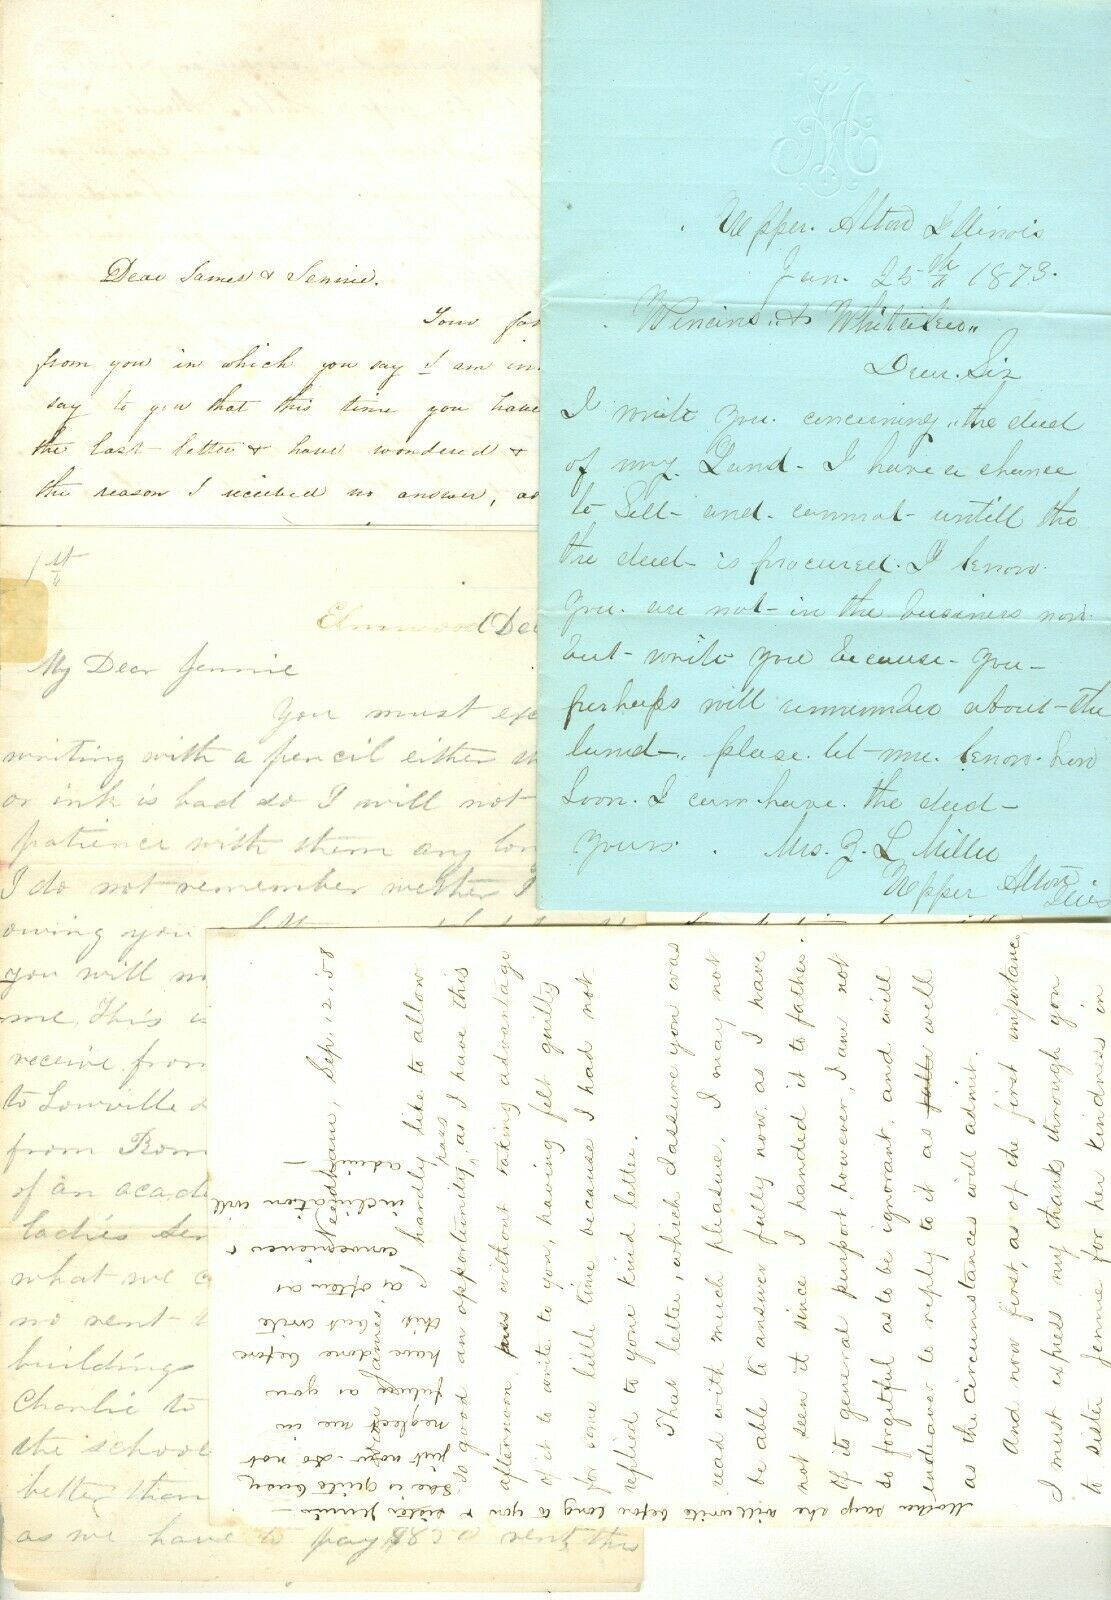 Dear James & Jennie.
Your fav
from you in which you say I am in
say to you that this time you have
the last letter & have wondered &
the reason I received no answer, as
Upper. Alton Illinois
Jan. 25th 1873.
& Whitaker"
Dear. Sir
I write you. concerning. the deed
of my. Land - I have a chance
to Sell - and - cannot - untill the
the deed - is procured. I know.
you. are not - in the business now
but - write you because - you -
perhaps will remember about - the
land - please. let - me. know. how
Soon. I can. have. the deed -
yours. Mrs. Z. L. Miller
Upper Alton
Ills
1st
Elmwood Dec
My Dear Jennie
You must exc
writing with a pencil either
or ink is bad so I will not
patience with them any lon
I do not remember wether I
owing you
you will
me. This
receive from
to Lowville
from Rom
of an acade
ladies Sem
what we
no rent
buildings
Charlie to
the school
better than
as we have to pay $800 rent this
Needham, Sep. 12. '58
I hardly like to allow
so good an opportunity, as I have this
pass
afternoon, pass without taking advantage
of it to write to you, having felt guilty
for some little time because I had not
replied to your kind letter.
That letter, which I assure you was
read with much pleasure, I may not
be able to answer fully now, as I have
not seen it since I handed it to father.
Of its general purport, however, I am not
so forgetful as to be ignorant, and will
endeavor to reply to it as fully well
as the circumstances will admit.
And now first, as of the first importance,
I must express my thanks through you
to sister Jennie for her kindness in
Mother says she will write before long to you & sister Jennie -
she is quite busy
just now - Do not
neglect me in
future as you
have done before
this, but write
as often as
convenience &
inclination will
admit -